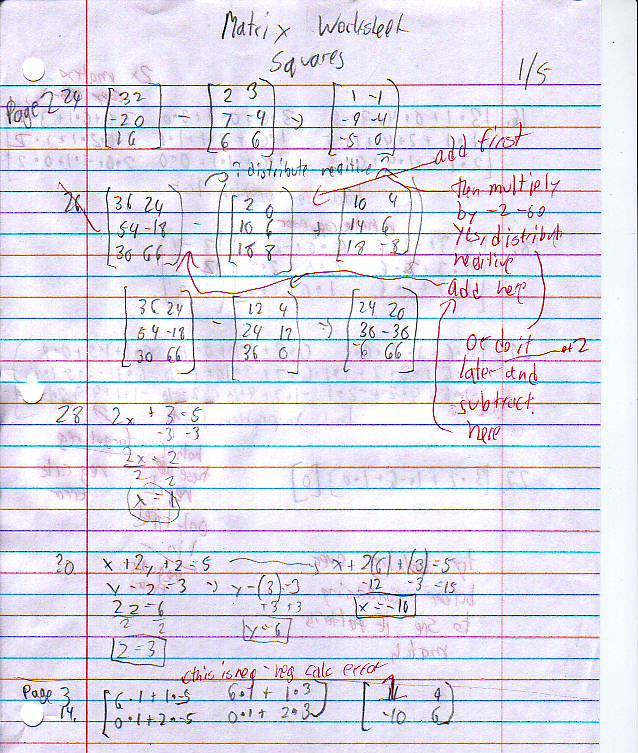 Matrix Worksheet
Squares
1/5
Page 2 24 [3 2 / -2 0 / 1 6] - [2 3 / 7 -4 / 6 6] ⇒ [1 -1 / -9 -4 / -5 0]
? distribute negitive ?
add first
26 [36 24 / 54 -18 / 30 66] - [2 0 / 10 6 / 18 8] + [10 4 / 14 6 / 18 -8]
then multiply
by -2
Yes, distribute
negitive
add here
[36 24 / 54 -18 / 30 66] - [12 4 / 24 12 / 36 0] ⇒ [24 20 / 30 -30 / -6 66]
or do it
later and
subtract
here
28 2x + 3 = 5
-3 -3
2x = 2
2 2
x = 1
30. x + 2y + z = 5 → x + 2(6) + (3) = 5
y - z = 3 → y - (3) = 3 -12 -3 = -15
2z = 6 +3 +3 x = -10
2 2 y = 6
z = 3
this is neg - neg calc error
Page 3
14. [6·1 + 1·-5 6·1 + 1·3 / 0·1 + 2·-5 0·1 + 2·3] [11 9 / -10 6]